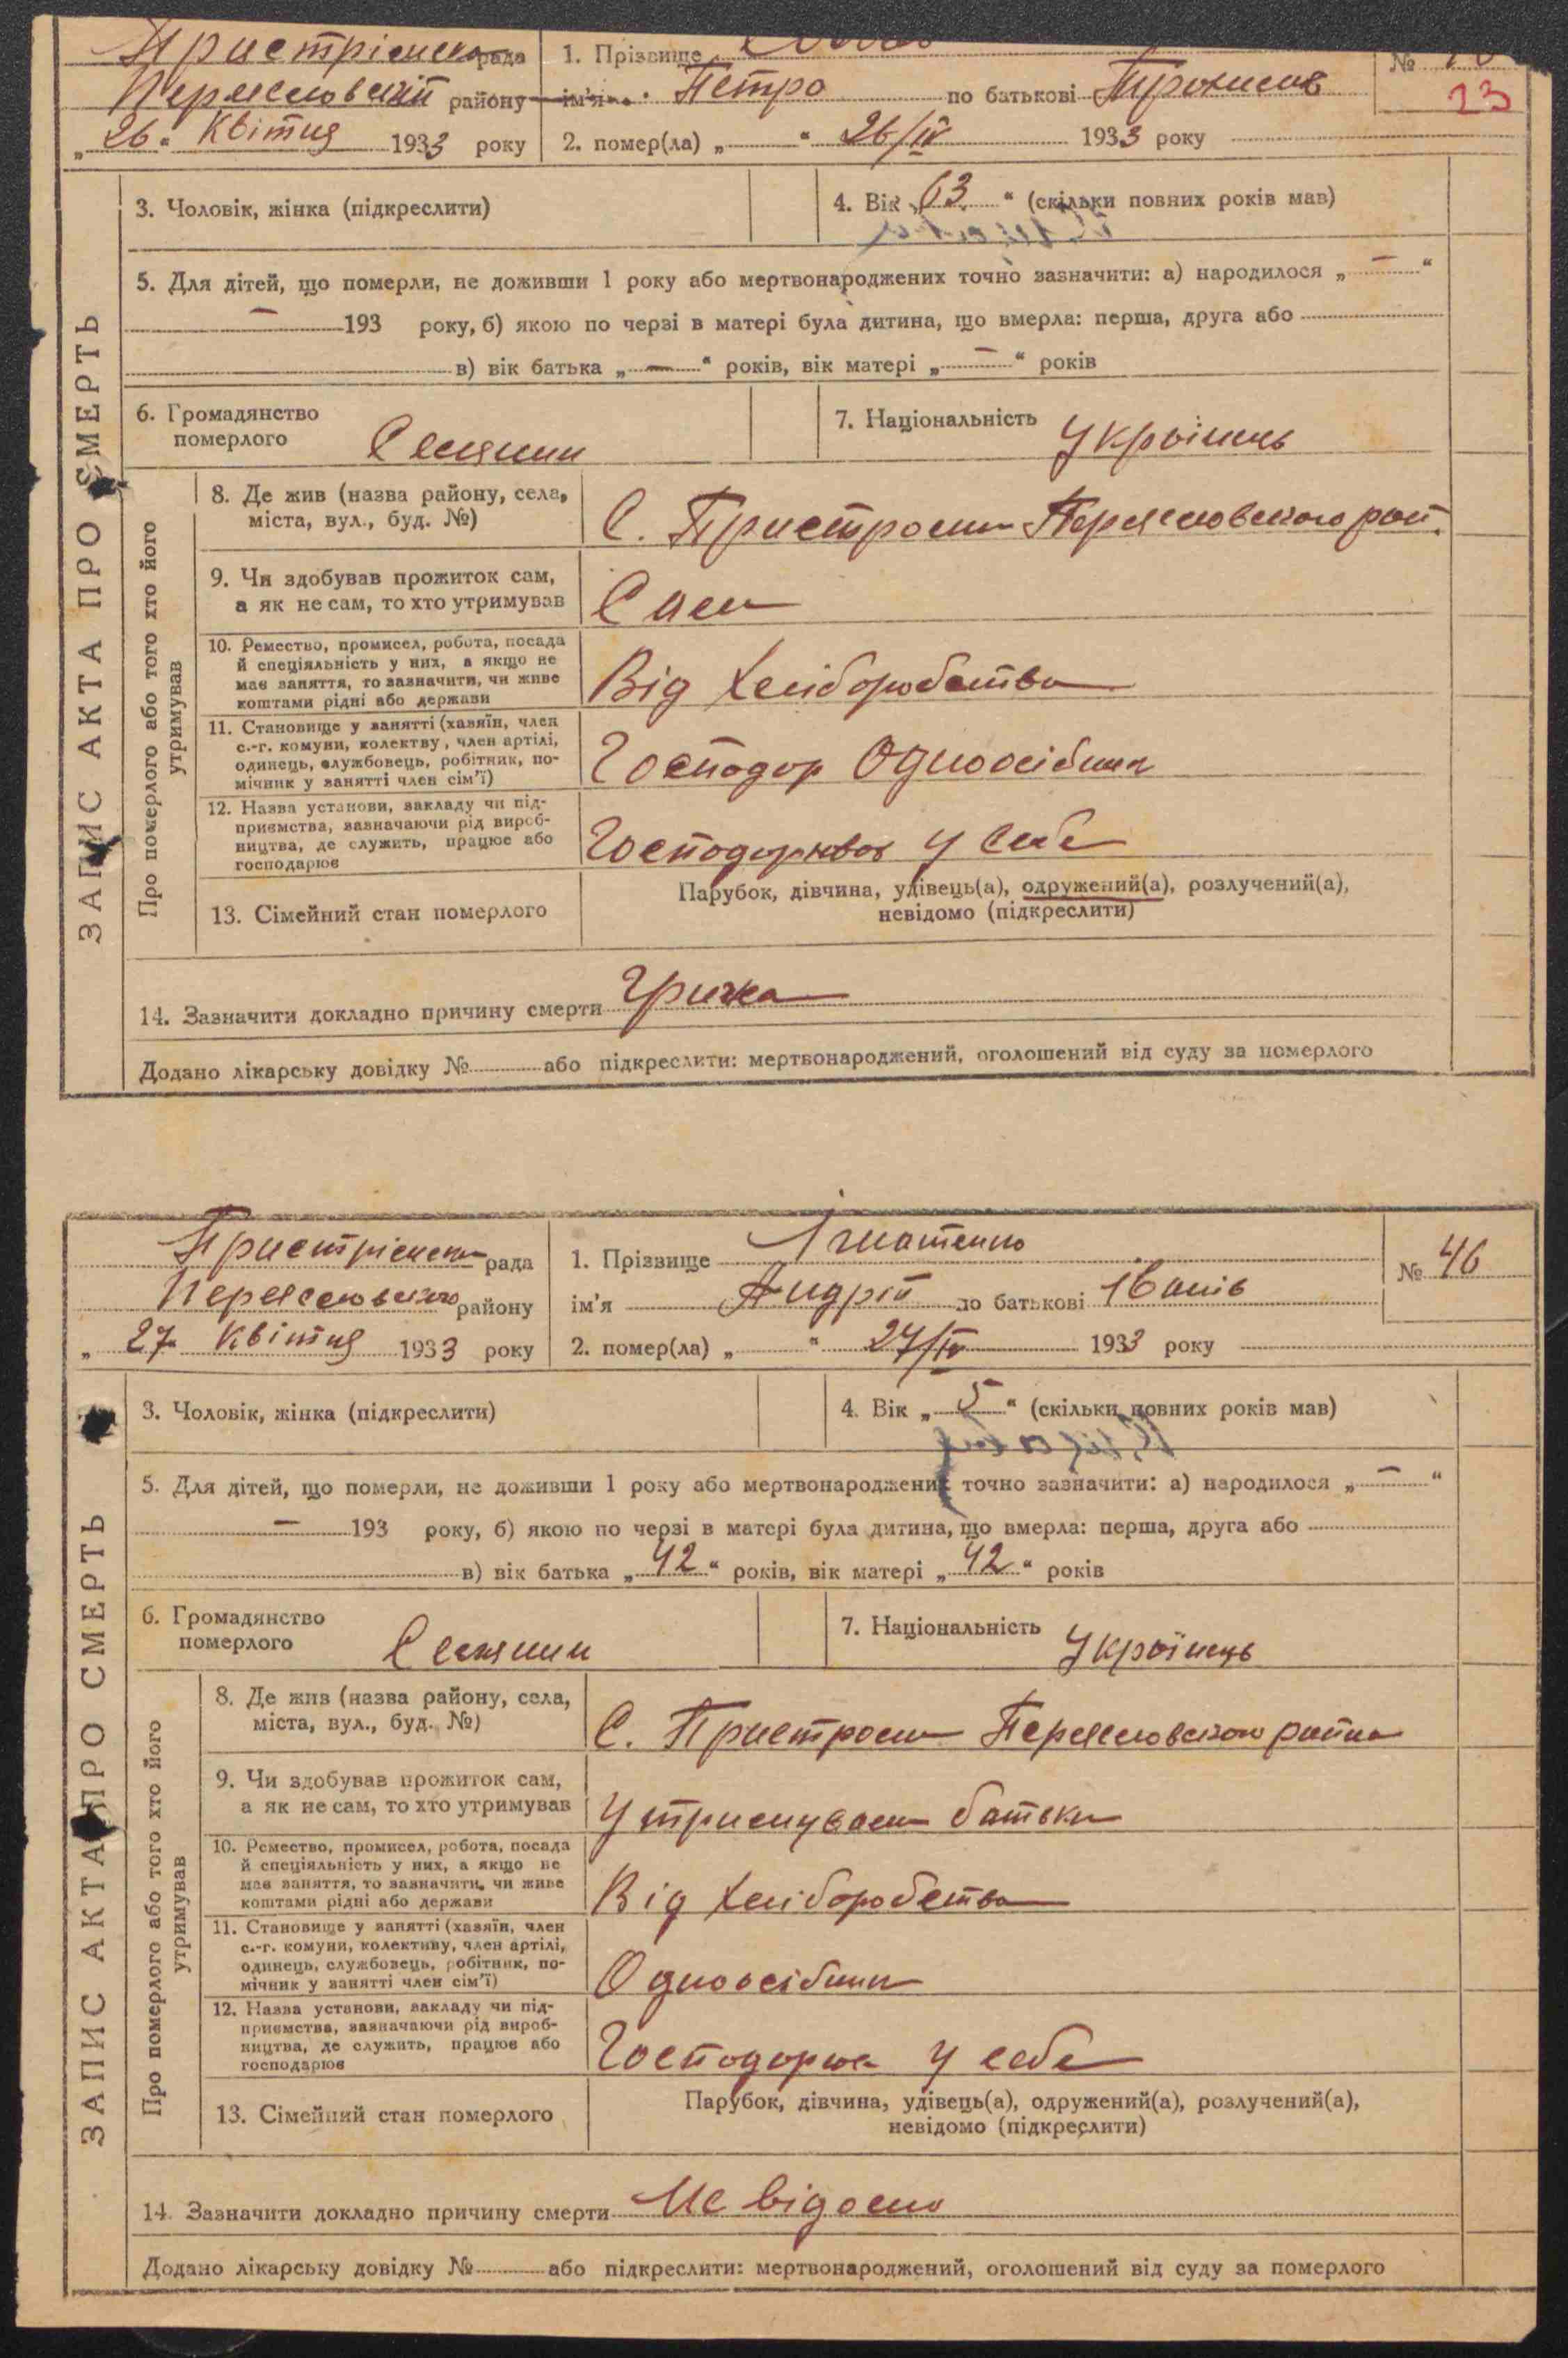 Пристрімска рада 1. Прізвище №
Переясловскій району ім'я Петро по батькові 13
„ 26 “ Квітня 1933 року 2. помер(ла) „ “ 26/IV 1933 року
3. Чоловік, жінка (підкреслити) 4. Вік „ 63 “ (скільки повних років мав)
5. Для дітей, що померли, не доживши 1 року або мертвонароджених точно зазначити: а) народилося „ — “
— 193 року, б) якою по черзі в матері була дитина, що вмерла: перша, друга або
в) вік батька „ — “ років, вік матері „ — “ років
6. Громадянство
померлого Селянин 7. Національність Українець
ЗАПИС АКТА ПРО СМЕРТЬ
Про померлого або того хто його
утримував
8. Де жив (назва району, села,
міста, вул., буд. №) С. Пристроми Переясловского рай.
9. Чи здобував прожиток сам,
а як не сам, то хто утримував Сам
10. Ремество, промисел, робота, посада
й спеціяльність у них, а якщо не
має заняття, то зазначити, чи живе
коштами рідні або держави Від Хліборобства
11. Становище у занятті (хазяїн, член
с.-г. комуни, колектву, член артілі,
одинець, службовець, робітник, по-
мічник у занятті член сім'ї) Господар Одноосібник
12. Назва установи, закладу чи під-
приємства, зазначаючи рід вироб-
ництва, де служить, працює або
господарює Господарював у себе
13. Сімейний стан померлого Парубок, дівчина, удівець(а), одружений(а), розлучений(а),
невідомо (підкреслити)
14. Зазначити докладно причину смерти Грижа
Додано лікарську довідку № або підкреслити: мертвонароджений, оголошений від суду за померлого
Пристрімска рада 1. Прізвище Ігнатенко № 46
Переясловского району ім'я Андрій по батькові Іванів
„ 27 Квітня 1933 року 2. помер(ла) „ “ 27/IV 1933 року
3. Чоловік, жінка (підкреслити) 4. Вік „ 5 “ (скільки повних років мав)
5. Для дітей, що померли, не доживши 1 року або мертвонароджених точно зазначити: а) народилося „ — “
— 193 року, б) якою по черзі в матері була дитина, що вмерла: перша, друга або
в) вік батька „ 42 “ років, вік матері „ 42 “ років
6. Громадянство
померлого Селянин 7. Національність Українець
ЗАПИС АКТА ПРО СМЕРТЬ
Про померлого або того хто його
утримував
8. Де жив (назва району, села,
міста, вул., буд. №) С. Пристроми Переясловского району
9. Чи здобував прожиток сам,
а як не сам, то хто утримував Утримували батьки
10. Ремество, промисел, робота, посада
й спеціяльність у них, а якщо не
має заняття, то зазначити, чи живе
коштами рідні або держави Від Хліборобства
11. Становище у занятті (хазяїн, член
с.-г. комуни, колективу, член артілі,
одинець, службовець, робітник, по-
мічник у занятті член сім'ї) Одноосібник
12. Назва установи, закладу чи під-
приємства, зазначаючи рід вироб-
ництва, де служить, працює або
господарює Господарює у себе
13. Сімейний стан померлого Парубок, дівчина, удівець(а), одружений(а), розлучений(а),
невідомо (підкреслити)
14. Зазначити докладно причину смерти Не відомо
Додано лікарську довідку № або підкреслити: мертвонароджений, оголошений від суду за померлого